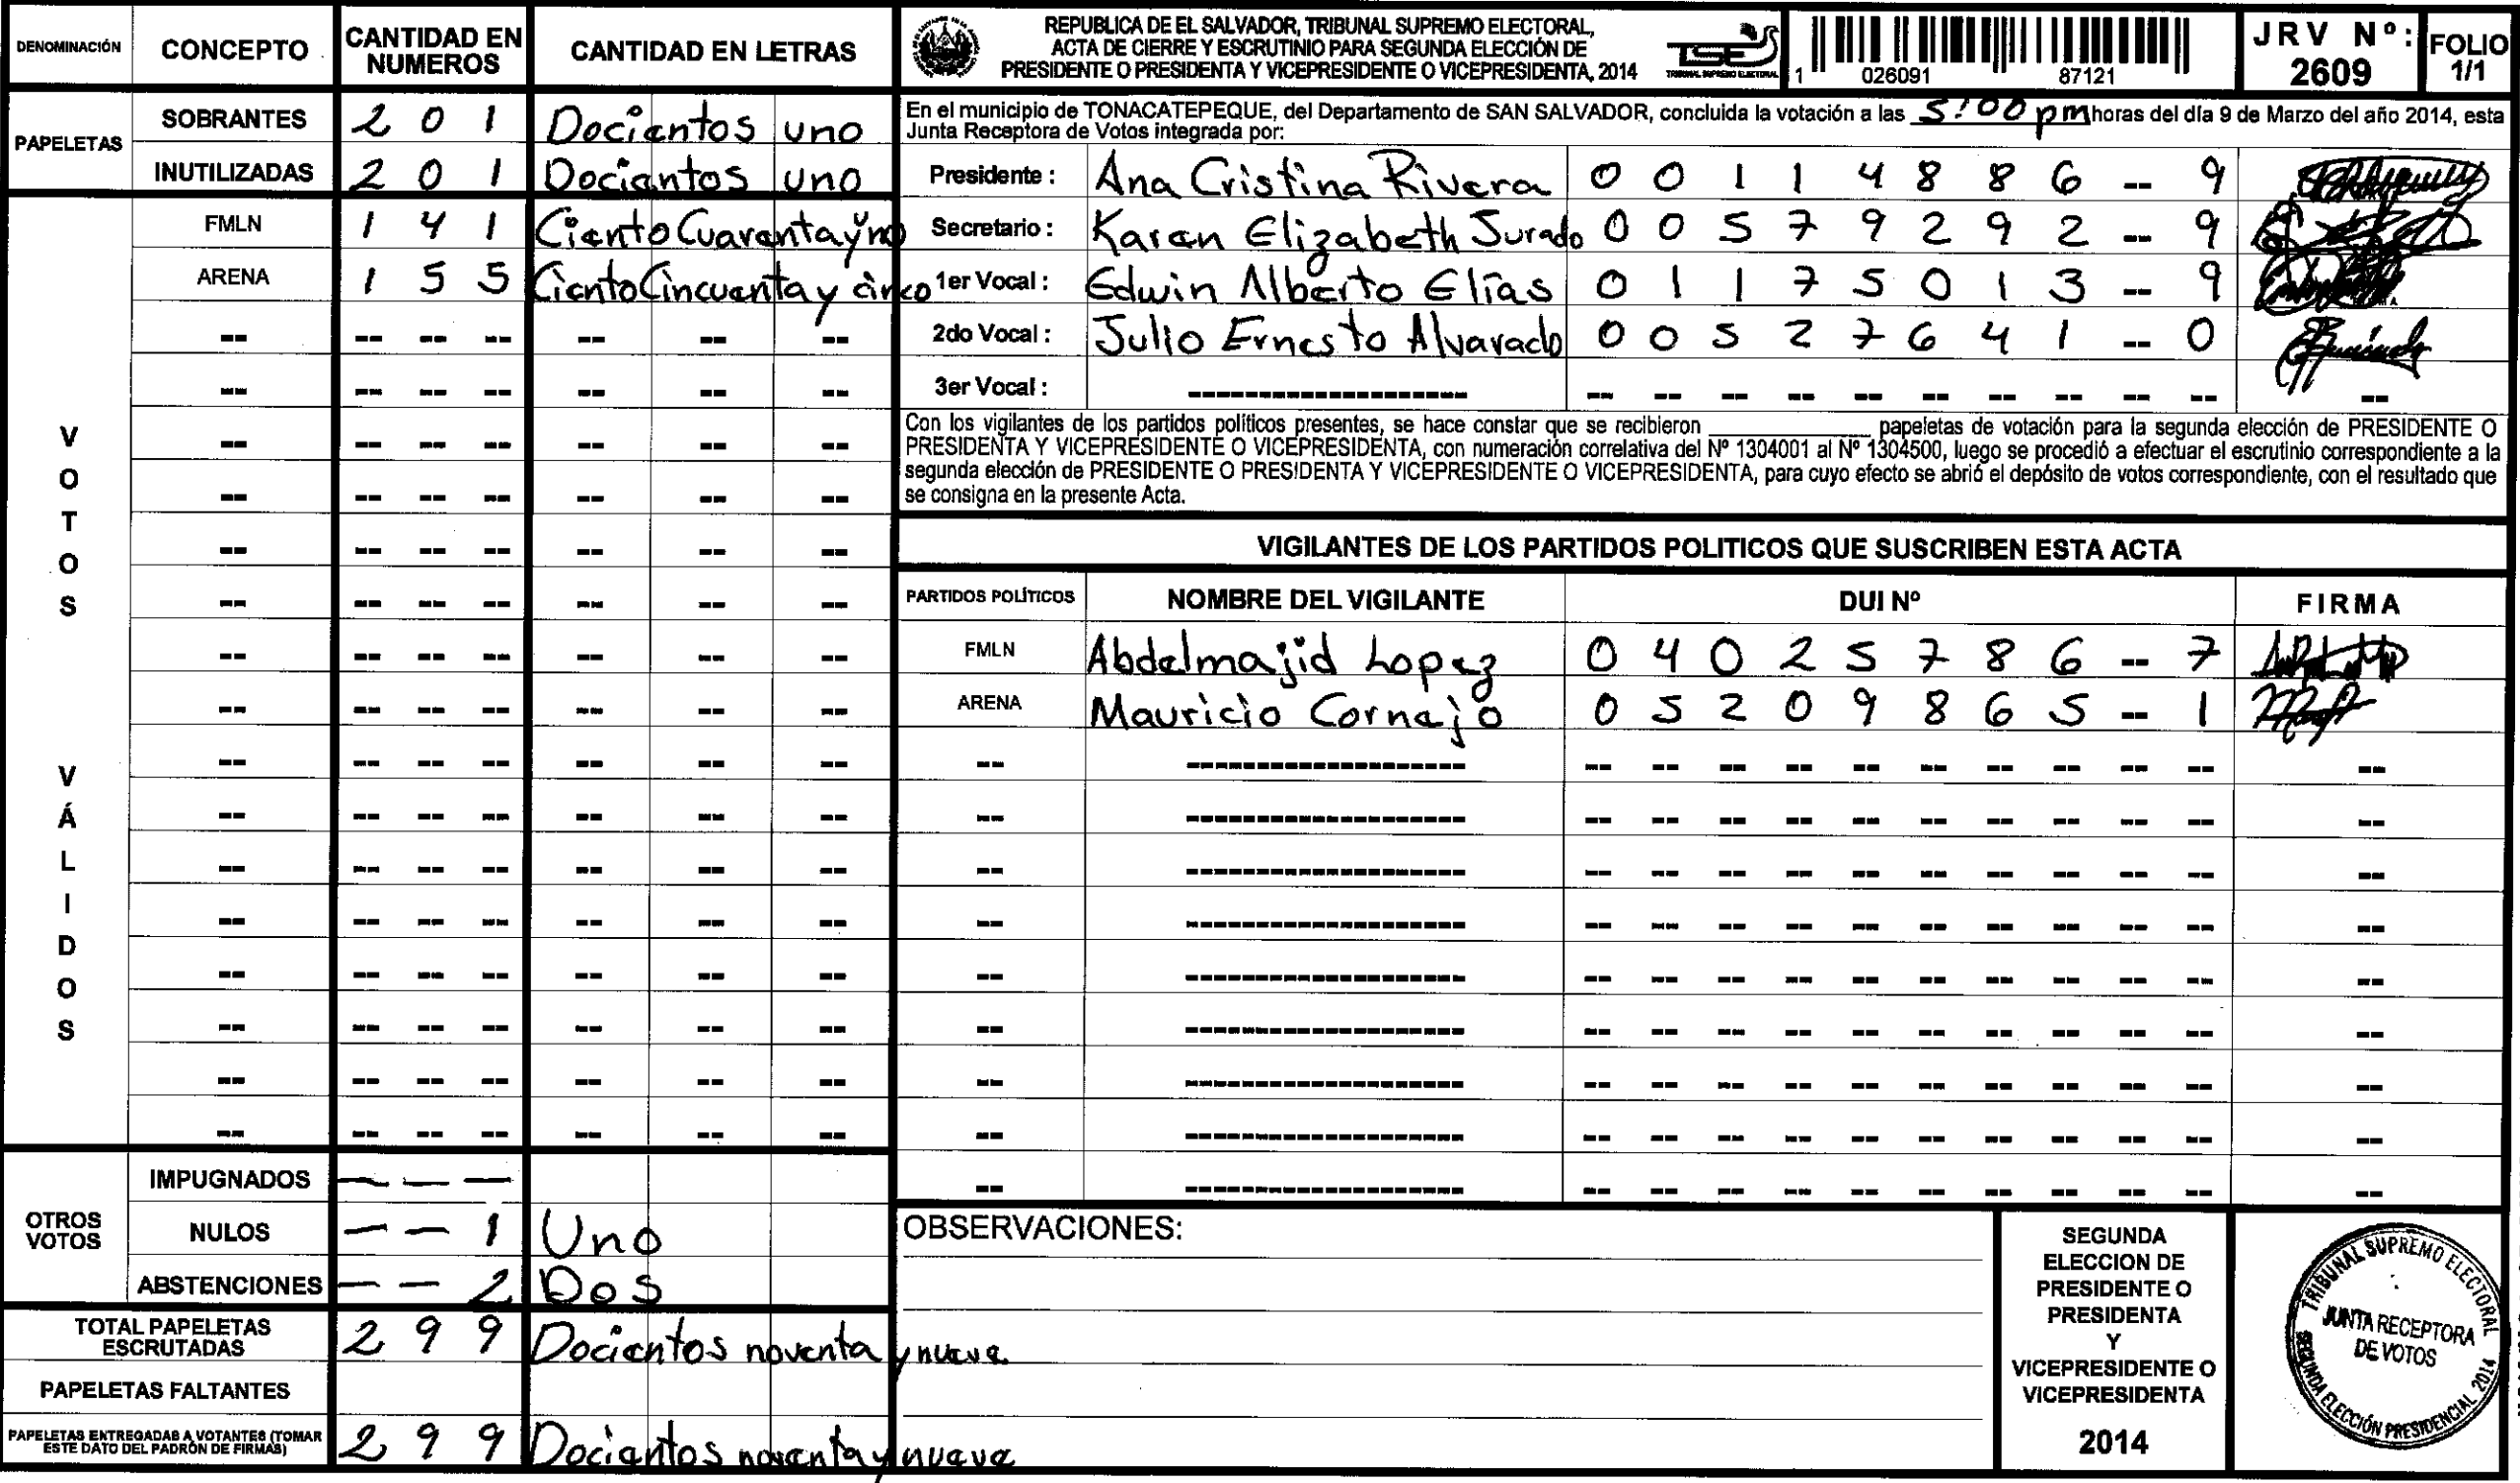 DENOMINACIÓN CONCEPTO CANTIDAD EN NUMEROS CANTIDAD EN LETRAS
PAPELETAS
SOBRANTES 2 0 1 Docientos uno
INUTILIZADAS 2 0 1 Docientos uno
VOTOS VÁLIDOS
FMLN 1 4 1 Ciento Cuarenta y uno
ARENA 1 5 5 Ciento Cincuenta y cinco
OTROS VOTOS
IMPUGNADOS — — —
NULOS — — 1 Uno
ABSTENCIONES — — 2 Dos
TOTAL PAPELETAS ESCRUTADAS 2 9 9 Docientos noventa y nueve
PAPELETAS FALTANTES
PAPELETAS ENTREGADAS A VOTANTES (TOMAR ESTE DATO DEL PADRÓN DE FIRMAS) 2 9 9 Docientos noventa y nueve
REPUBLICA DE EL SALVADOR, TRIBUNAL SUPREMO ELECTORAL,
ACTA DE CIERRE Y ESCRUTINIO PARA SEGUNDA ELECCIÓN DE
PRESIDENTE O PRESIDENTA Y VICEPRESIDENTE O VICEPRESIDENTA, 2014
TSE
TRIBUNAL SUPREMO ELECTORAL
1 026091 87121
JRV Nº: 2609
FOLIO 1/1
En el municipio de TONACATEPEQUE, del Departamento de SAN SALVADOR, concluida la votación a las 5:00 pm horas del día 9 de Marzo del año 2014, esta
Junta Receptora de Votos integrada por:
Presidente : Ana Cristina Rivera 0 0 1 1 4 8 8 6 -- 9
Secretario : Karen Elizabeth Jurado 0 0 5 7 9 2 9 2 -- 9
1er Vocal : Edwin Alberto Elías 0 1 1 7 5 0 1 3 -- 9
2do Vocal : Julio Ernesto Alvarado 0 0 5 2 7 6 4 1 -- 0
3er Vocal :
Con los vigilantes de los partidos políticos presentes, se hace constar que se recibieron ________ papeletas de votación para la segunda elección de PRESIDENTE O
PRESIDENTA Y VICEPRESIDENTE O VICEPRESIDENTA, con numeración correlativa del Nº 1304001 al Nº 1304500, luego se procedió a efectuar el escrutinio correspondiente a la
segunda elección de PRESIDENTE O PRESIDENTA Y VICEPRESIDENTE O VICEPRESIDENTA, para cuyo efecto se abrió el depósito de votos correspondiente, con el resultado que
se consigna en la presente Acta.
VIGILANTES DE LOS PARTIDOS POLITICOS QUE SUSCRIBEN ESTA ACTA
PARTIDOS POLÍTICOS NOMBRE DEL VIGILANTE DUI Nº FIRMA
FMLN Abdelmajid Lopez 0 4 0 2 5 7 8 6 -- 7
ARENA Mauricio Cornejo 0 5 2 0 9 8 6 5 -- 1
OBSERVACIONES:
SEGUNDA
ELECCION DE
PRESIDENTE O
PRESIDENTA
Y
VICEPRESIDENTE O
VICEPRESIDENTA
2014
TRIBUNAL SUPREMO ELECTORAL
JUNTA RECEPTORA
DE VOTOS
SEGUNDA ELECCIÓN PRESIDENCIAL 2014